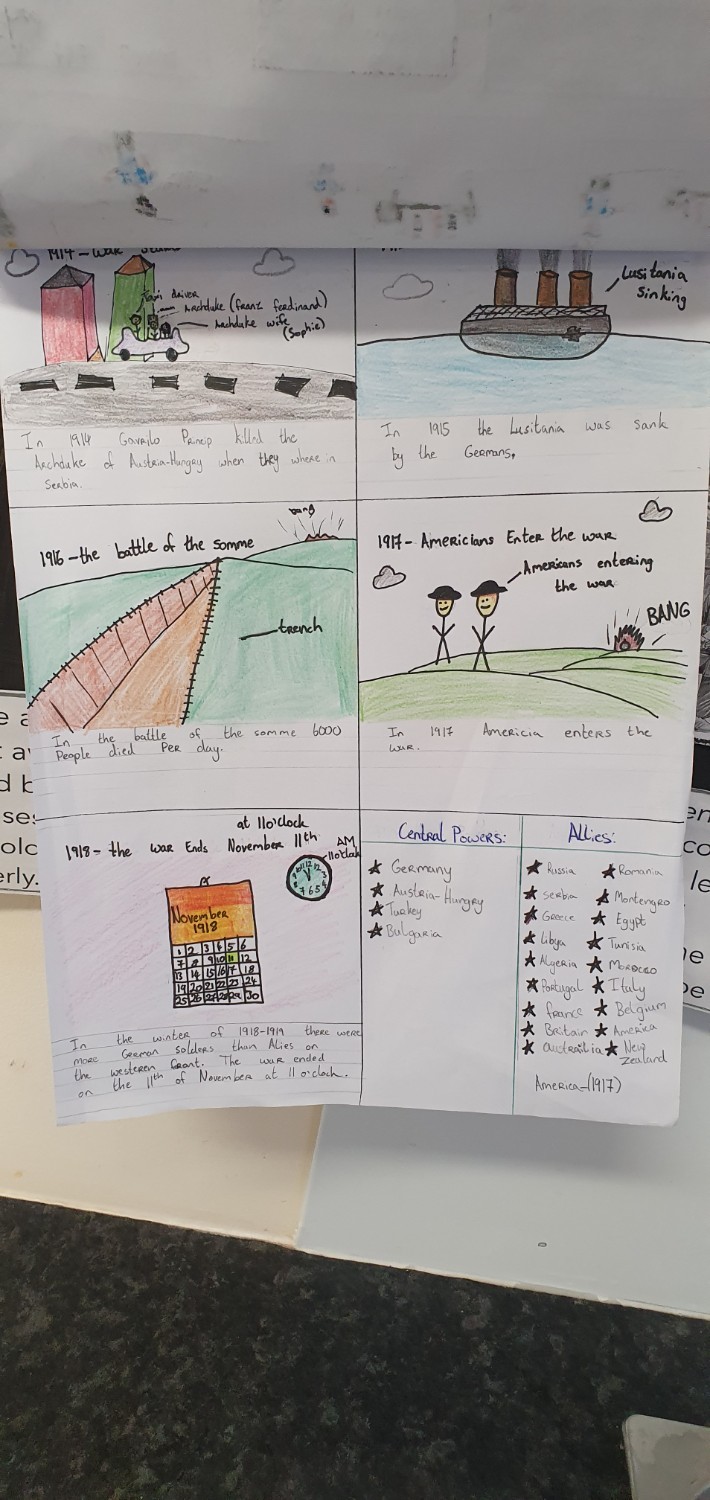 1914 - War
Taxi driver
Archduke (Franz ferdinand)
Archduke wife
(Sophie)
In 1914 Gavrilo Princip killed the
Archduke of Austria-Hungry when they where in
Serbia.
Lusitania
Sinking
In 1915 the Lusitania was sank
by the Germans.
1916 - the battle of the somme
bang
trench
In the battle of the somme 6000
People died Per day.
1917 - Americians Enter the war
Americans entering
the war
BANG
In 1917 Americia enters the
war.
at 11 o'clock
1918 - the war Ends November 11th
AM
11 o'clock
November
1918
1 2 3 4 5 6
7 8 9 10 11 12
13 14 15 16 17 18
19 20 21 22 23 24
25 26 27 28 29 30
In the winter of 1918-1919 there were
more German solders than Alies on
the westeren front. The war ended
on the 11th of November at 11 o'clock.
Central Powers:
Germany
Austria-Hungry
Turkey
Bulgaria
Allies:
Russia
Romania
Serbia
Montengro
Greece
Egypt
Libya
Tunisia
Algeria
Morocco
Portugal
Italy
france
Belgium
Britain
America
Austrailia
New
Zealand
America - (1917)